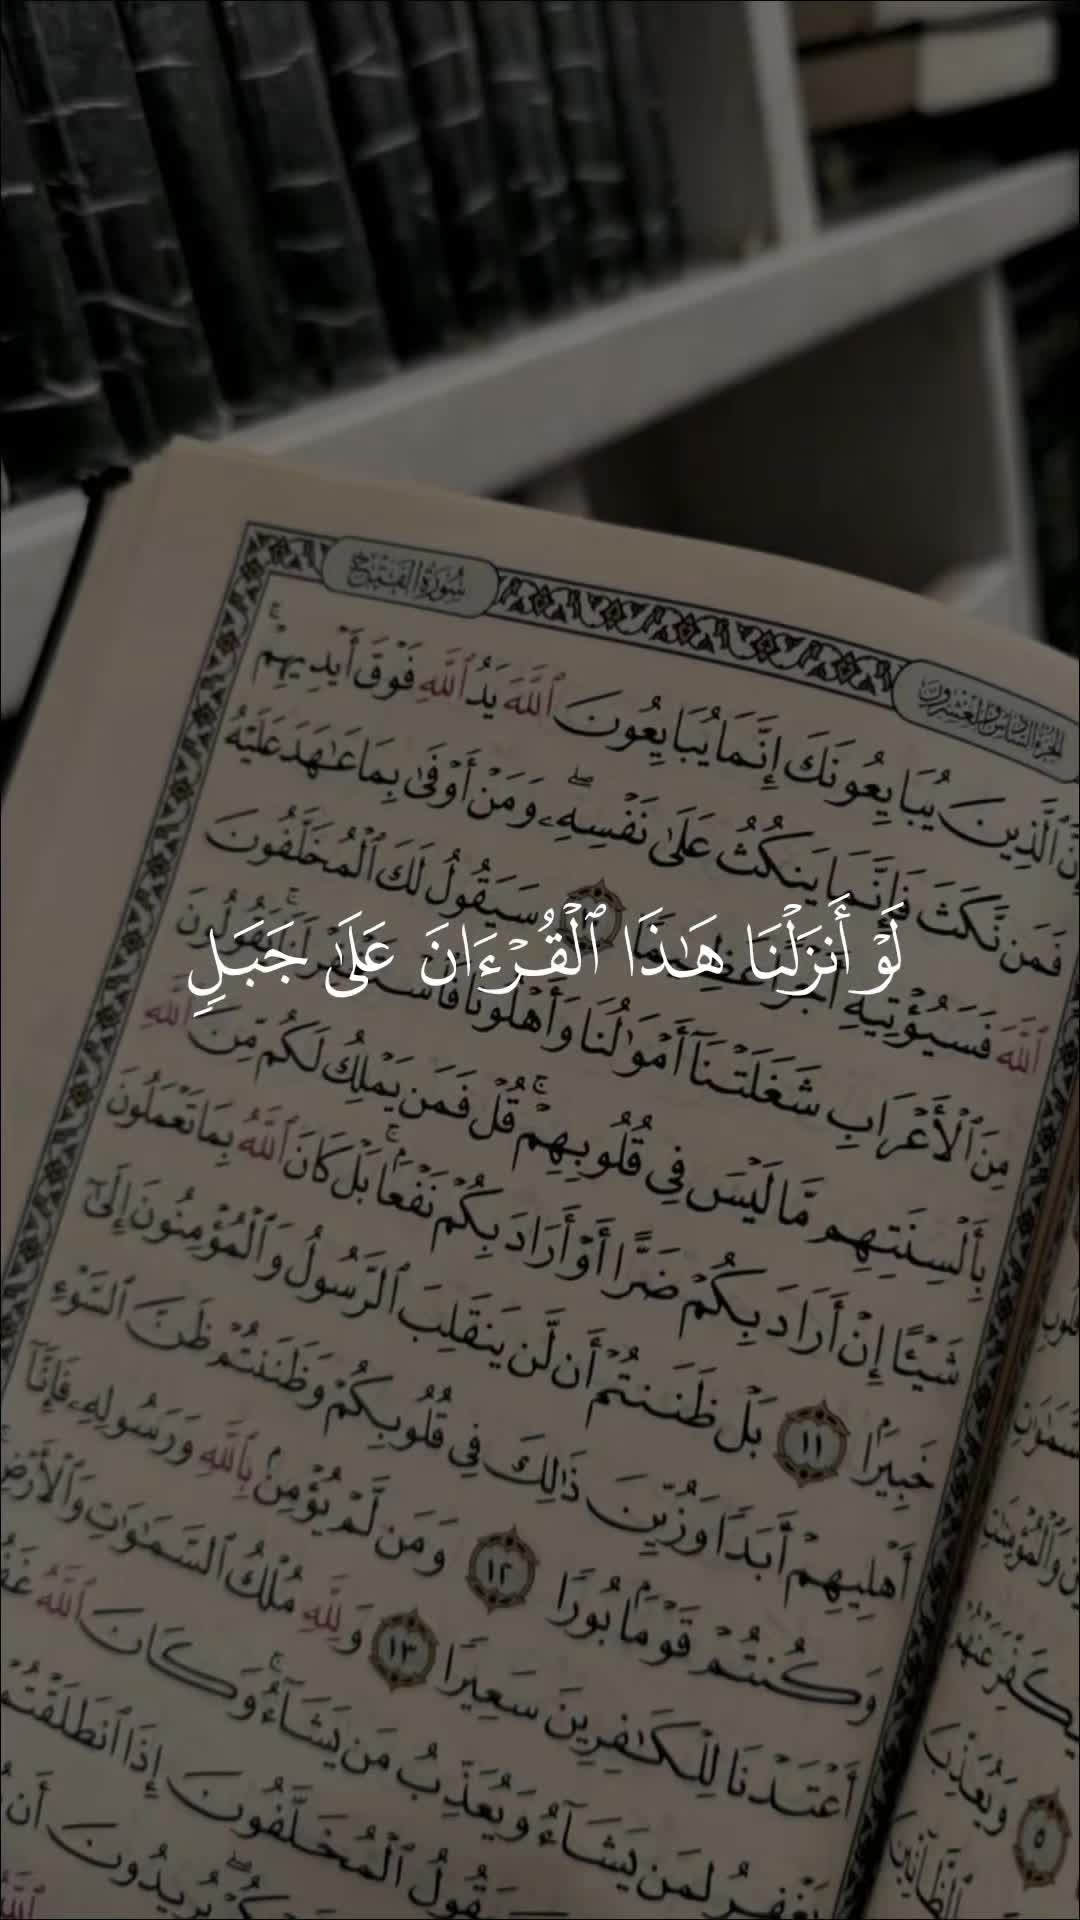 سُورَةُ الفَتْحِ
الجُزْءُ السَّادِسُ وَالعِشْرُونَ
إِنَّ ٱلَّذِينَ يُبَايِعُونَكَ إِنَّمَا يُبَايِعُونَ ٱللَّهَ يَدُ ٱللَّهِ فَوۡقَ أَيۡدِيهِمۡۚ
فَمَن نَّكَثَ فَإِنَّمَا يَنكُثُ عَلَىٰ نَفۡسِهِۦۖ وَمَنۡ أَوۡفَىٰ بِمَا عَٰهَدَ عَلَيۡهُ
ٱللَّهَ فَسَيُؤۡتِيهِ أَجۡرًا عَظِيمٗا سَيَقُولُ لَكَ ٱلۡمُخَلَّفُونَ
لَوۡ أَنزَلۡنَا هَٰذَا ٱلۡقُرۡءَانَ عَلَىٰ جَبَلٖ
مِنَ ٱلۡأَعۡرَابِ شَغَلَتۡنَآ أَمۡوَٰلُنَا وَأَهۡلُونَا فَٱسۡتَغۡفِرۡ لَنَاۚ يَقُولُونَ
بِأَلۡسِنَتِهِم مَّا لَيۡسَ فِي قُلُوبِهِمۡۚ قُلۡ فَمَن يَمۡلِكُ لَكُم مِّنَ ٱللَّهِ
شَيۡـًٔا إِنۡ أَرَادَ بِكُمۡ ضَرًّا أَوۡ أَرَادَ بِكُمۡ نَفۡعَۢاۚ بَلۡ كَانَ ٱللَّهُ بِمَا تَعۡمَلُونَ
خَبِيرَۢا ١١ بَلۡ ظَنَنتُمۡ أَن لَّن يَنقَلِبَ ٱلرَّسُولُ وَٱلۡمُؤۡمِنُونَ إِلَىٰٓ
أَهۡلِيهِمۡ أَبَدٗا وَزُيِّنَ ذَٰلِكَ فِي قُلُوبِكُمۡ وَظَنَنتُمۡ ظَنَّ ٱلسَّوۡءِ
وَكُنتُمۡ قَوۡمَۢا بُورٗا ١٢ وَمَن لَّمۡ يُؤۡمِنۢ بِٱللَّهِ وَرَسُولِهِۦ فَإِنَّآ
أَعۡتَدۡنَا لِلۡكَٰفِرِينَ سَعِيرٗا ١٣ وَلِلَّهِ مُلۡكُ ٱلسَّمَٰوَٰتِ وَٱلۡأَرۡضِۚ
يَغۡفِرُ لِمَن يَشَآءُ وَيُعَذِّبُ مَن يَشَآءُۚ وَكَانَ ٱللَّهُ
سَيَقُولُ ٱلۡمُخَلَّفُونَ إِذَا ٱنطَلَقۡتُمۡ
يُرِيدُونَ أَن
وَيُعَذِّبَ
٥